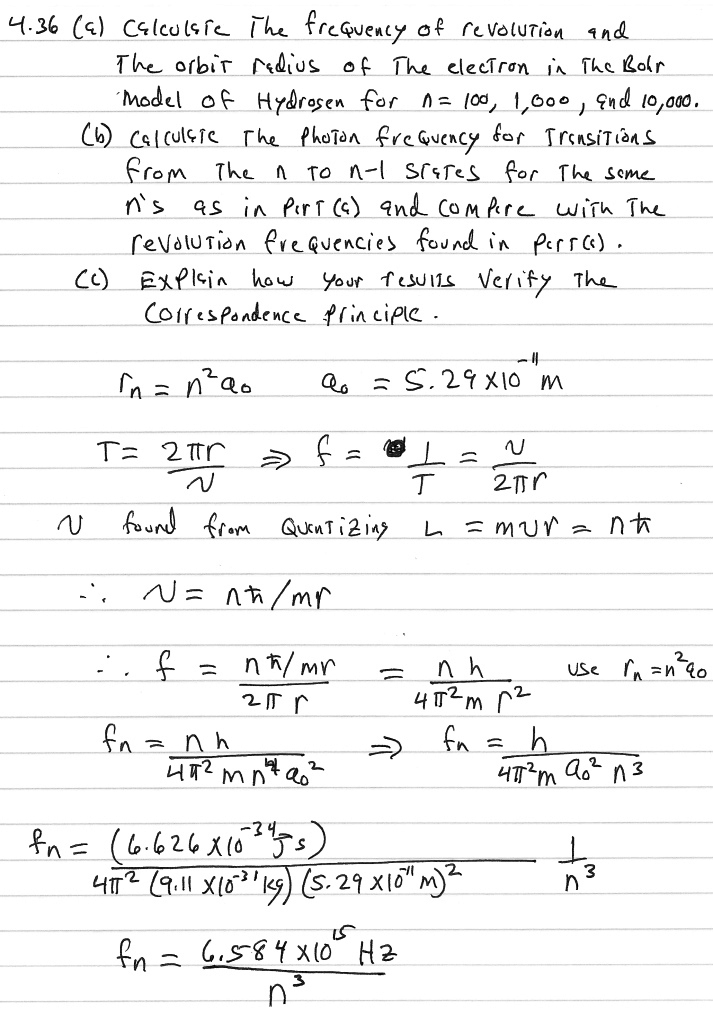 4.36 (a) Calculate The frequency of revolution and
The orbit radius of The electron in The Bohr
Model of Hydrogen for n = 100, 1,000, and 10,000.
(b) Calculate The Photon frequency for Transitions
from The n to n-1 states for The same
n's as in Part (a) and compare with The
revolution frequencies found in part (a).
(c) Explain how your results Verify The
Correspondence Principle.
rₙ = n²a₀   a₀ = 5.29 x10⁻¹¹ m
T = 2πr/v ⇒ f = 1/T = v/2πr
v found from Quantizing L = mvr = nħ
∴ v = nħ/mr
∴ f = (nħ/mr)/(2πr) = nh/(4π²mr²)   use rₙ = n²a₀
fₙ = nh/(4π²mn⁴a₀²) ⇒ fₙ = h/(4π²ma₀²n³)
fₙ = (6.626 x10⁻³⁴ Js)/(4π² (9.11 x10⁻³¹ kg)(5.29 x10⁻¹¹ m)²) 1/n³
fₙ = 6.584 x10¹⁵ Hz/n³